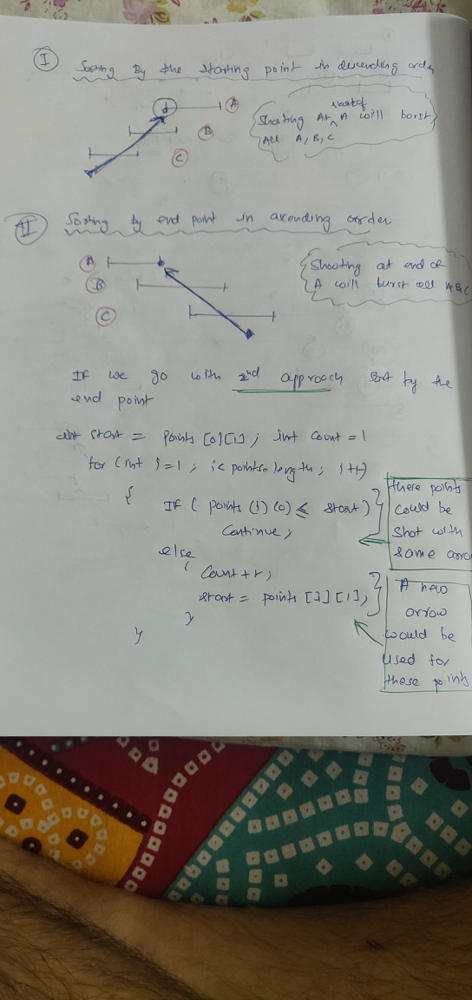 I Soring By the starting point in decending order
d A
B
C
Shooting At start of A will burst
All A, B, C
II Sorting by end point in axending orrder
A
B
C
Shooting at end of
A will burst all ABC
If we go with 2nd approach sort by the
end point
int start = points [0][1] ; int count = 1
for (int i=1 ; i< points.length ; i++)
{ If ( points (i) (0) <= start)
continue;
these points
could be
shot with
same arro
else
{ Count++,
start = points [i] [1],
}
}
A new
arrow
would be
used for
these points